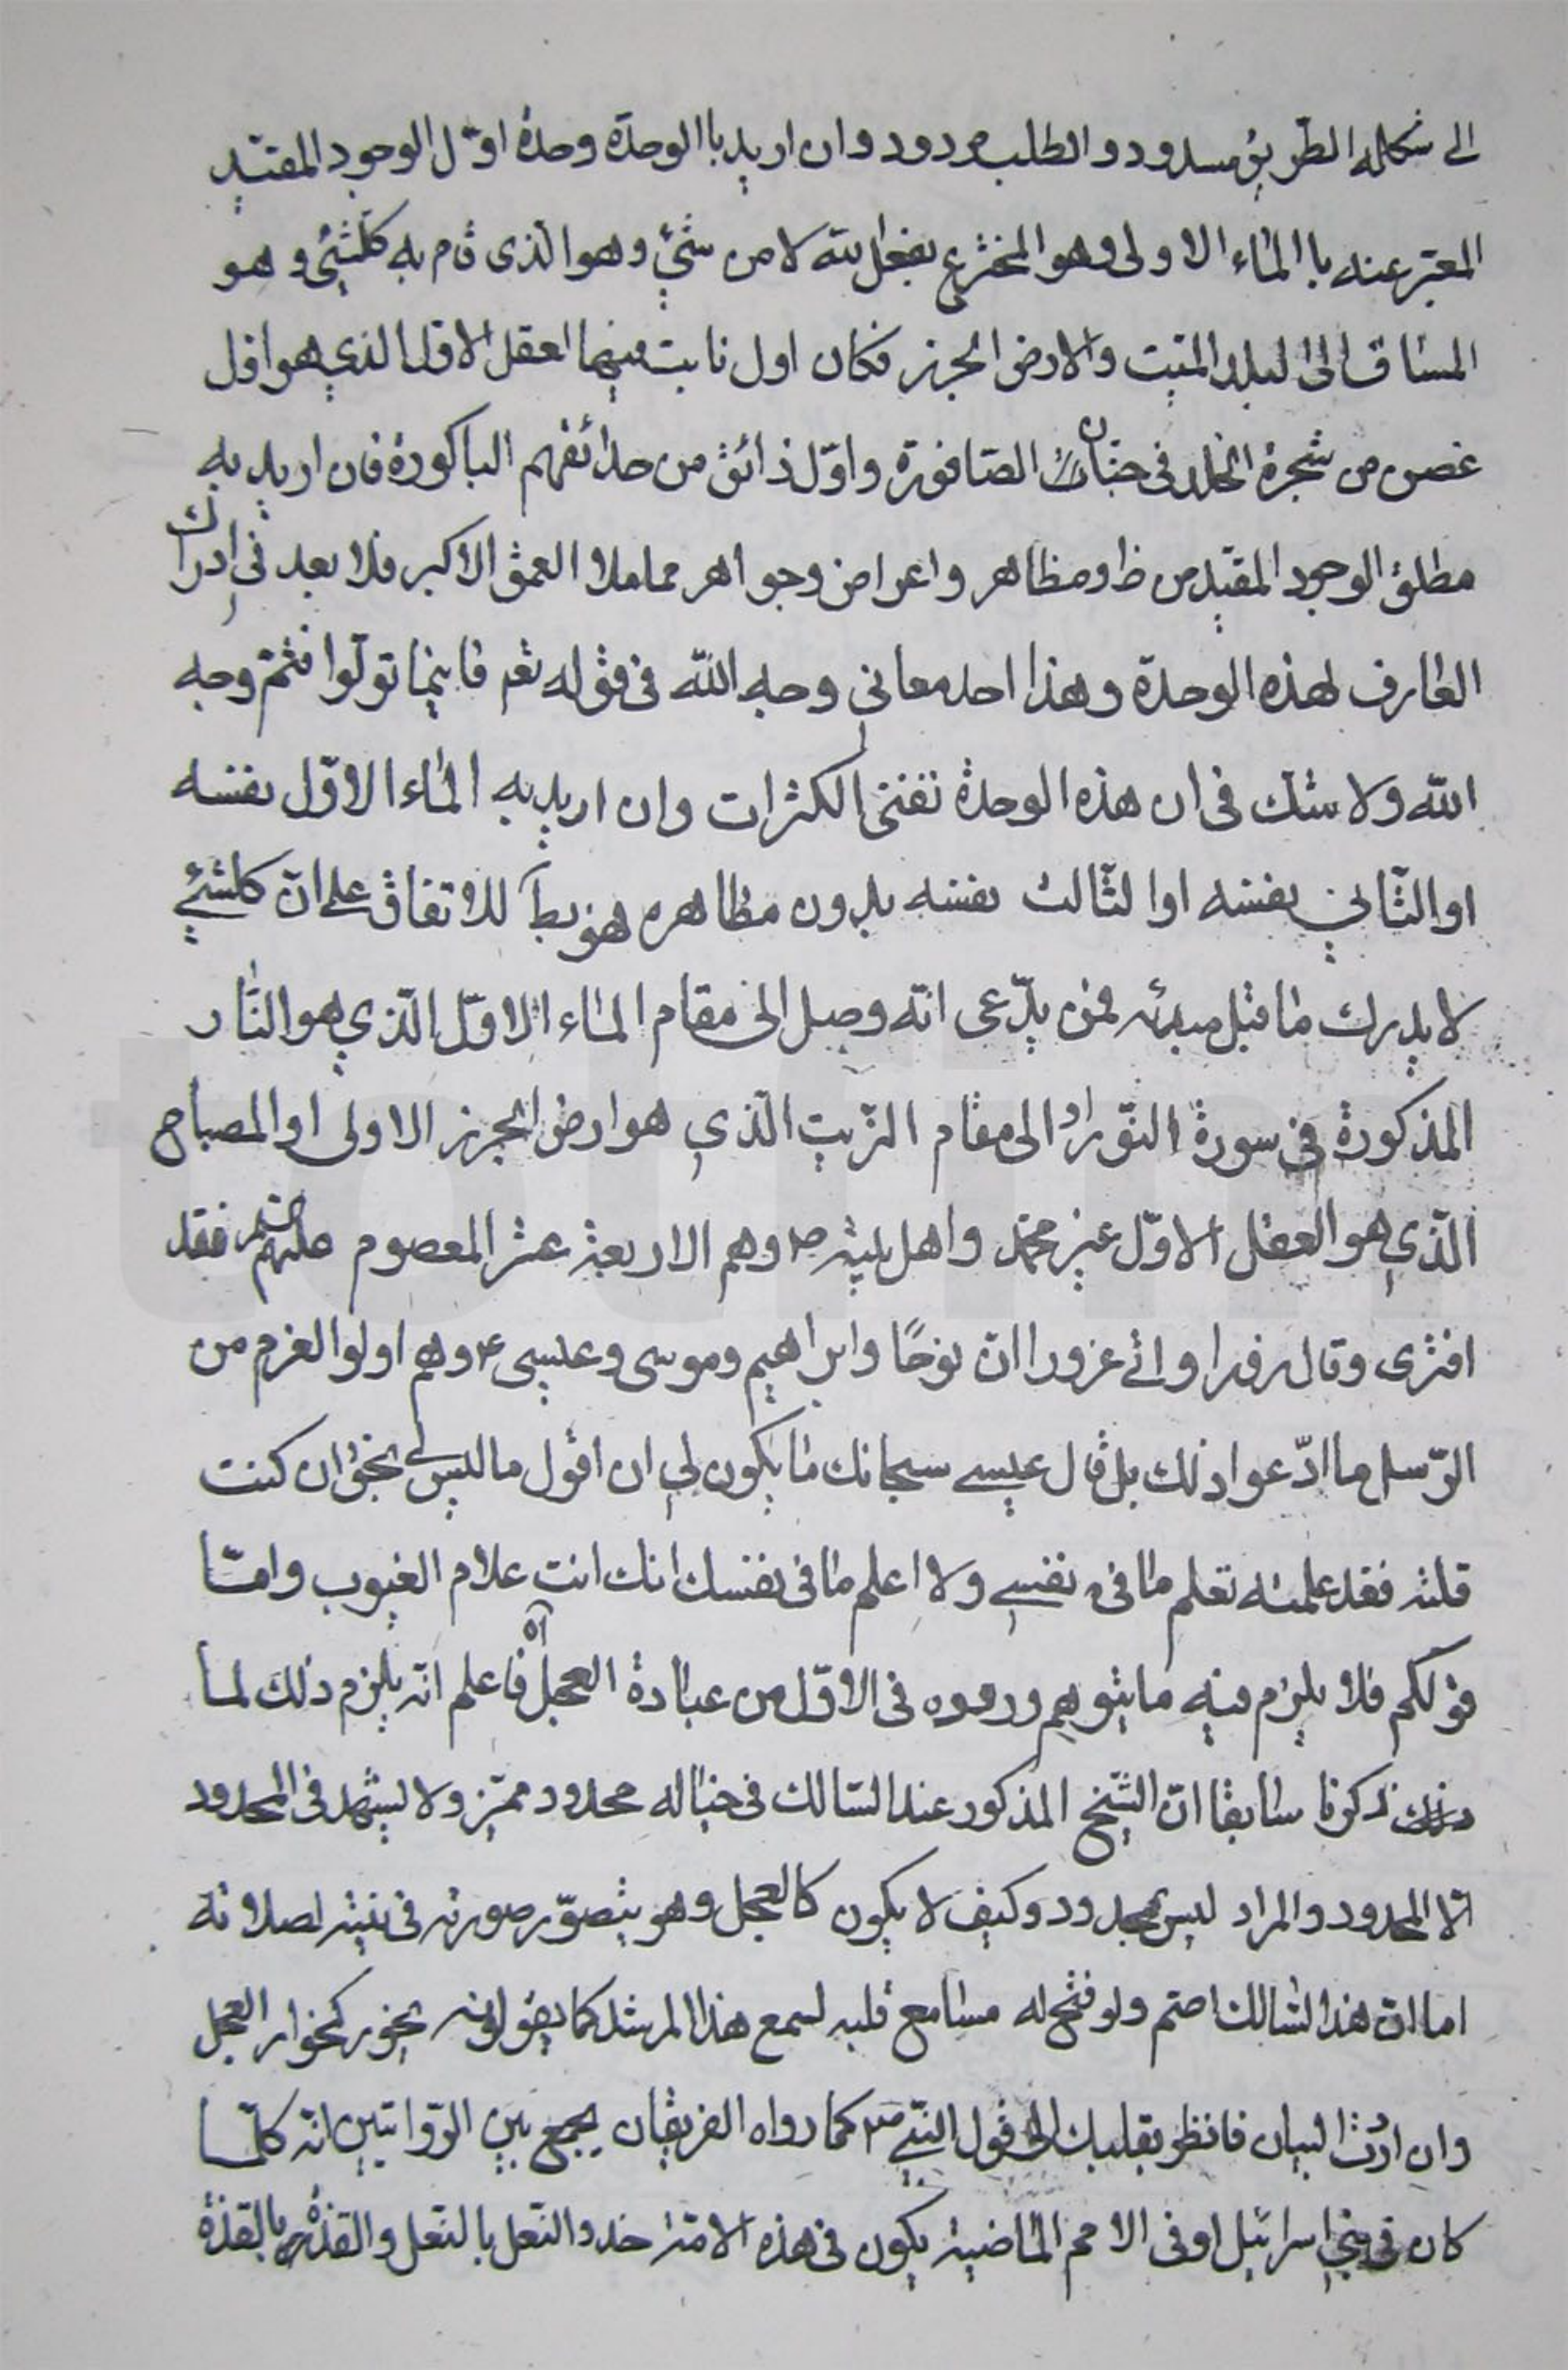 الى شكله الطريق مسدود والطلب مردود وان اريد باالوحدة وحدة اوّل الوجود المقيّد
المعبّر عنه باالماء الاولى وهو المخترع بفعل الله لا من شئ وهو الّذى قام به كلشئ وهو
المساق الى البلد الميّت والارض الجرز فكان اول نابت فيهما العقل الاوّل الذي هو اوّل
غصن من شجرة الخلد فى جنان الصاقورة واوّل ذائق من حدائقهم الباكورة فان اريد به
مطلق الوجود المقيّد من ظ ومظاهر واعراض وجواهر مما ملاء العمق الاكبر فلا بعد فى ادراك
العارف لهذه الوحدة وهذا احد معاني وجه اللّه فى قوله تعم فاينما تولّوا فثمّ وجه
اللّه ولا شك فى ان هذه الوحدة تفنى الكثرات وان اريد به الماء الاوّل نفسه
او الثّاني نفسه او الثّالث نفسه بدون مظاهره فهو بط للاتفاق على انّ كلشئ
لا يدرك ما قبل مبدئه فمن يدّعى انّه وصل الى مقام الماء الاوّل الّذي هو النّار
المذكورة فى سورة النّور او الى مقام الزّيت الّذي هو ارض الجرز الاولى او المصباح
الّذي هو العقل الاوّل غير محمّد واهل بيته ص وهم الاربعة عشر المعصوم عليهم فقد
افترى وقال زورا واتى غرورا انّ نوحًا وابراهيم وموسى وعيسى ع وهم اولوا العزم من
الرّسل ما ادّعوا ذلك بل قال عيسى سبحانك ما يكون لي ان اقول ما ليس لى بحق ان كنت
قلته فقد علمته تعلم ما فى نفسي ولا اعلم ما فى نفسك انك انت علام الغيوب وامّا
قولكم فلا يلزم فيه ما يتوهم وروده فى الاوّل من عبادة العجل آه فاعلم انّه يلزم ذلك لما
ذكرنا سابقا انّ الشّيخ المذكور عند السّالك فى خياله محدود مميّز ولا يشهد فى المحدود
الّا المحدود والمراد ليس بمحدود وكيف لا يكون كالعجل وهو يتصوّر صورته فى نيته لصلاته
اما انّ هذا السّالك اصمّ ولو فتح له مسامع قلبه لسمع هذا المرشد كما يقولونه يخور كخوار العجل
وان اردت البيان فانظر بقلبك الى قول النّبي ص كما رواه الفريقان بجمع بين الرّوايتين انّه كلّما
كان فى بني اسرائيل او فى الامم الماضية يكون فى هذه الامّة حذو النّعل بالنّعل والقذّة بالقذّة